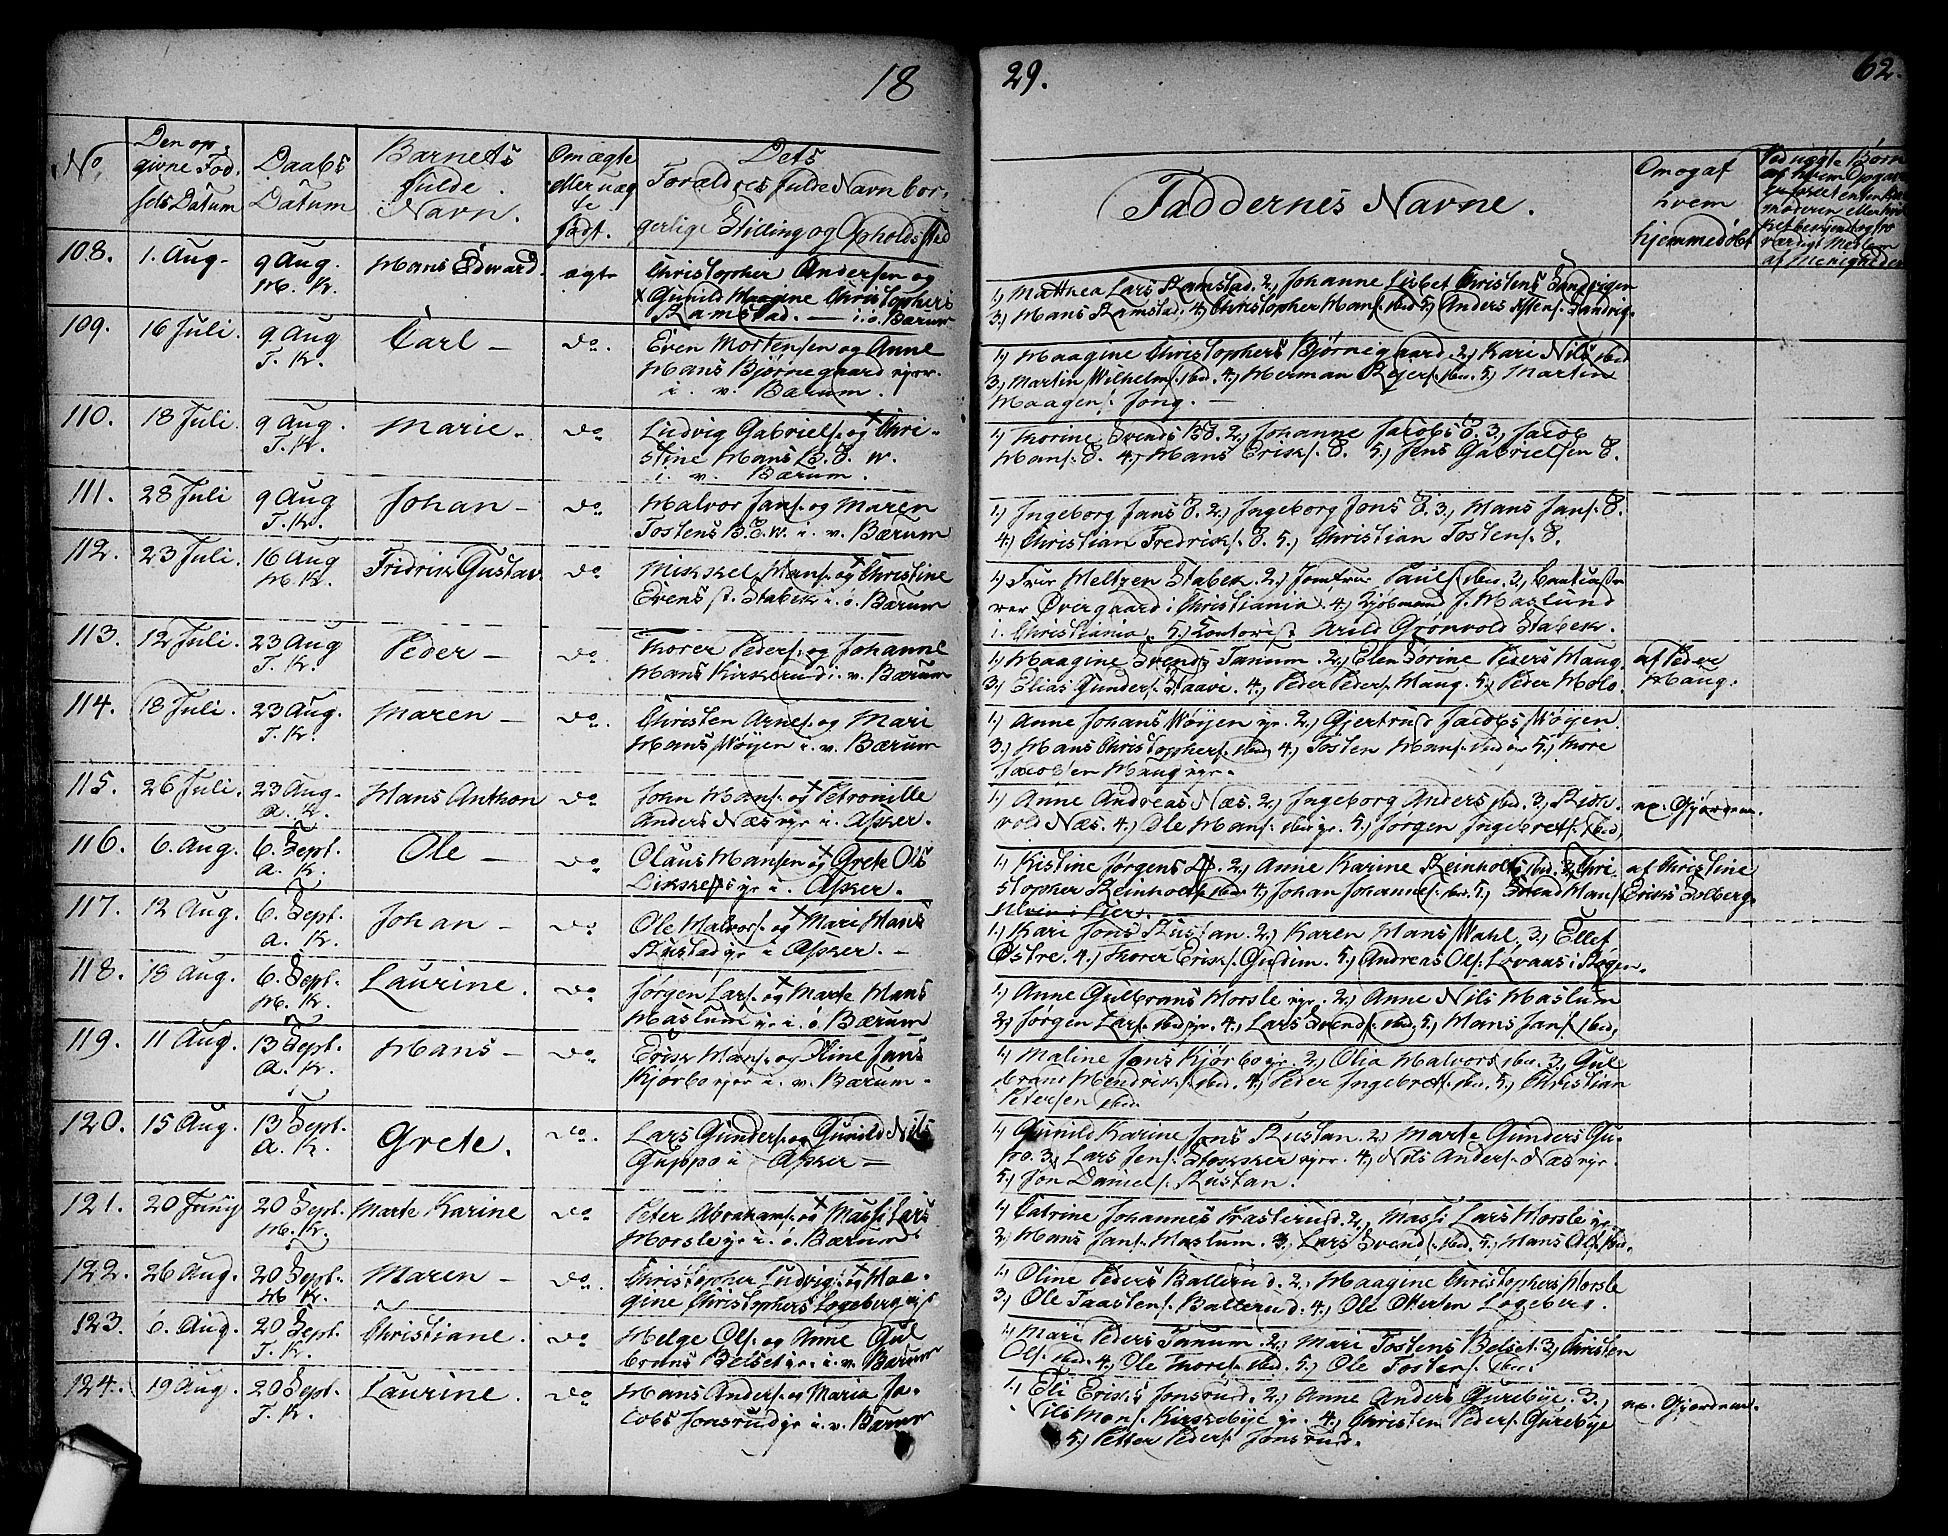 18
29.
62.
No,
Den op-
givne Fød-
sels Datum
Daabs
Datum
Barnets
fulde
Navn.
Om ægte
eller uæg
te
født.
Dets
Forældres fulde Navn bor-
gerlige Stilling og Opholds Sted
Faddernes Navne.
Om og af
hvem
hjemmedøbt
108.
1. Aug.
9 Aug.
H. K.
Hans Edward.
ægte
Christopher Andersen og
Gunild Maagine Christophers
Ramstad. — i. ø. Bærum
1, Matthea Lars Ramstad. 2, Johanne Lisbet Christens Sandvigen
3, Hans Ramstad. 4, Christopher Hans. ibid 5, Anders Sandvig.
109.
16 Juli.
9 Aug
T. K.
Carl —
do.
Even Mortensen og Anne
Hans Bjørnegaard
i. v. Bærum.
1, Maagine Christophers Bjørnegaard. 2, Kari Nils ibid
3, Martin Wilhelms. ibid. 4, Herman ibid. 5, Martin
Maagens. Jong. —
110.
18 Juli.
9 Aug.
T. K.
Marie.
do
Ludvig Gabriels. og Chri-
stine Hans B. E. W.
i. v. Bærum.
1, Thorine Svends B. E. 2, Johanne Jacobs E. 3, Jacob
Hans. E. 4, Hans Eriks. E. 5, Jens Gabrielsen E.
111.
28 Juli
9 Aug
T. K.
Johan —
do
Halvor Jans. og Maren
Tostens B. E. W. i. v. Bærum
1, Ingeborg Jans E. 2, Ingeborg Jons E. 3, Hans Jans. E.
4, Christian Fredriks. E. 5, Christian Tostens. E.
112.
23 Juli.
16 Aug
H. K.
Fredrik Gustav
do
Mikkel Hans. og Christine
Evens Stabek i. ø. Bærum
1, Frue Meltzen Stabek. 2, Jomfrue Pauls ibid. 3,
Øvergaard i Christiania. 4, Kjøbmand J. Haslund
i. Christiania. 5, Contorist Arild Grønvold Stabek.
113.
12 Juli.
23 Aug
T. K.
Peder —
do
Thorer Peders. og Johanne
Hans Kirkerud i. v. Bærum
1, Maagine Svends Tanum. 2, Elen Sørine Peders Haug.
3, Elias Gunders. Staavi. 4, Peder Peders. Haug. 5, Peder Holo.
af Peder
Haug.
114.
18 Juli.
23 Aug.
T. K.
Maren —
do.
Christen Arnes. og Mari
Hans Wøyen i. v. Bærum
1, Anne Johans Wøyen gr. 2, Gjertrud Jacobs Wøyen
3, Hans Christophers. ibid, 4, Tosten Hans. ibid 5, Thore
Jacobsen Haug gr.
115.
26 Juli.
23 Aug.
A. K.
Hans Anthon
do
John Hans. og Petronille
Anders Næs gr i. Asker.
1, Anne Andreas Næs. 2, Ingeborg Anders ibid. 3,
vold Næs. 4, Ole Hans. ibid gr. 5, Jørgen Ingebrets. ibid
ex. Gjordem.
116.
6. Aug.
6. Sept.
A. K.
Ole —
do
Olaus Hansen og Grete Ols
gr i. Asker.
1, Kistine Jørgens 2, Anne Karine Reinholts ibid. 3, Chri-
stopher Reinholts. ibid. 4, Johan Johannes. ibid. 5, Svend Hans.
i Lier.
af Christine
Eriks Solberg.
117.
12 Aug.
6. Sept.
A. K.
Johan —
do
Ole Halvors. og Mari Hans
Rustad gr i Asker. —
1, Kari Jons Rustan. 2, Karen Hans Wahl. 3, Ellef
Østre. 4, Thorer Eriks. Gudim. 5, Andreas Ols. Lovaas i Røgen.
118.
18 Aug.
6. Sept.
H. K.
Laurine.
do
Jørgen Lars. og Marte Hans
Haslum gr i. ø. Bærum
1, Anne Gulbrans Horsle gr. 2, Anne Nils Haslum
2, Jørgen Lars. ibid gr. 4, Lars Svends. ibid, 5, Hans Jans. ibid,
119.
11 Aug.
13 Sept.
A. K.
Hans —
do
Erik Hans. og Oline Jans
Kjørbo i. v. Bærum.
1, Maline Jons Kjørbo gr. 2, Olia Halvors ibid. 3, Gul
brans Hendriks. ibid. 4, Peder Ingebrets. ibid. 5, Christian
Petersen ibid.
120.
15 Aug.
13 Sept.
A. K.
Grete.
do.
Lars Gunders. og Gunild Nils
Guppo i Asker —
1, Gunild Karine Jens Rustan. 2, Marte Gunders Gu-
po. 3, Lars Jens. Stokker. 4, Nils Anders. Næs gr.
5, Jon Daniels. Rustan.
121.
20 Juny
20 Sept.
H. K.
Marte Karine
do
Peter Abrahams. og Massi Lars
Horsle gr i. ø. Bærum
1, Catrine Johannes Prasterud. 2, Massi Lars Horsle gr.
2, Hans Jans. Haslum. 3, Lars Svends. ibid. 5, Hans Ols. ibid.
122.
26 Aug.
20 Sept.
H. K.
Maren —
do.
Christopher Ludvigs. og Maa-
gine Christophers Løgeberg
1, Oline Peders Ballerud. 2, Maagine Christophers Horsle
3, Ole Taastens. Ballerud. 4, Ole Ottersen Løgeberg.
123.
6. Aug.
20 Sept.
T. K.
Christiane.
do
Helge Ols. og Anne Gul
brans Belset gr. i. v. Bærum
1, Mari Peders Tanum. 2, Mari Tostens Belset. 3, Christen
Ols. ibid. 4, Ole Thores. ibid. 5, Ole Tostens. ibid.
124.
19 Aug.
20 Sept.
T. K.
Laurine.
do
Hans Anders. og Maria Ja-
cobs Jonsrud gr i. v. Bærum
1, Eli Eriks Jonsrud. 2, Anne Anders Gurebye. 3,
Nils Mons. Kirkebye gr. 4, Christen Peders. Gurebye
5, Petter Peders. Jonsrud.
ex. Gjordem.